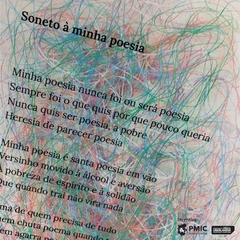 Soneto à minha poesia
Minha poesia nunca foi ou será poesia
Sempre foi o que quis por que pouco queria
Nunca quis ser poesia, a pobre
Heresia de parecer poesia
Minha poesia é santa poesia em vão
Versinho movido à álcool e aversão
A pobreza de espírito e à solidão
Que quando trai não vira nada
ma de quem precisa de tudo
uem chuta poema quando
em agarra
PMIC